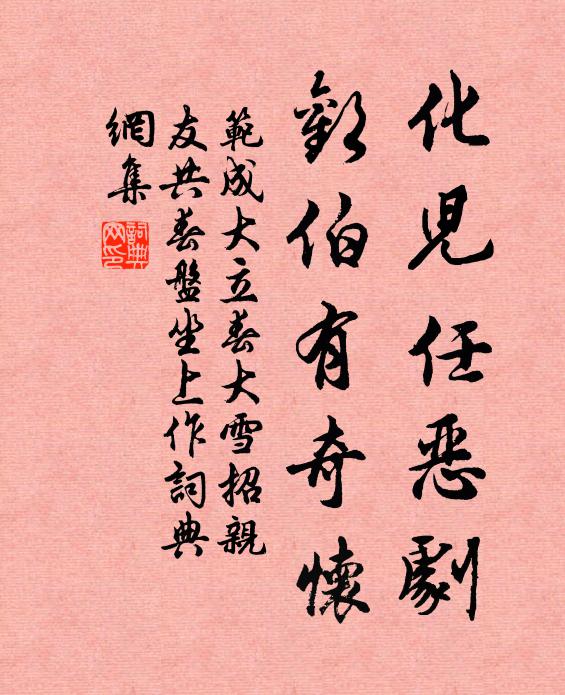 化兒任惡劇
歡伯有奇懷
範成大立春大雪招親
友共春盤坐上作詞典
網集
詞典
网印